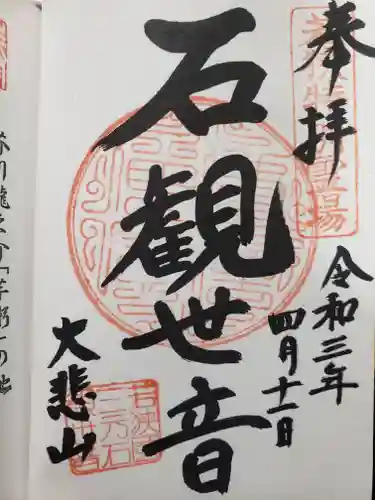 奉拝
令和三年
四月十一日
石観世音
大悲山
芥川龍之介「芋粥」の地